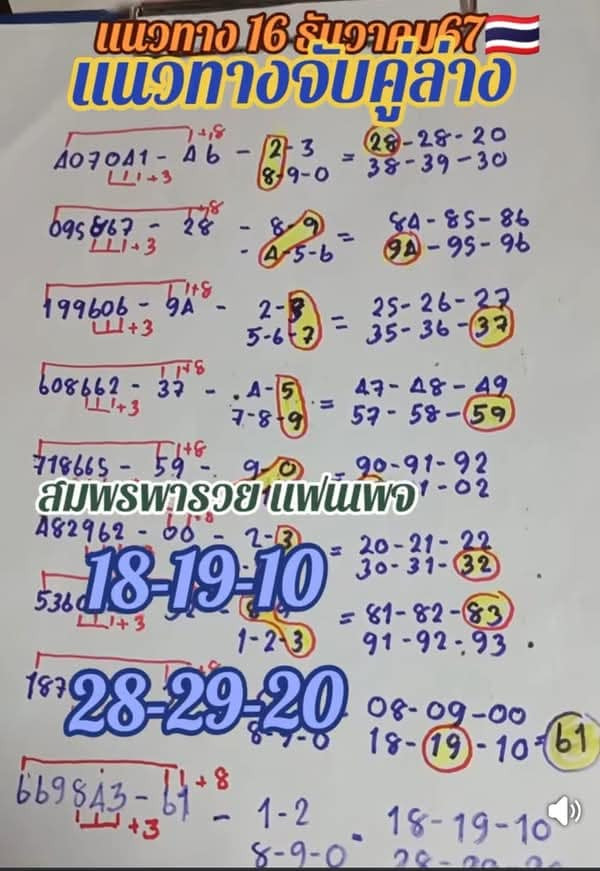 แนวทาง 16 ธันวาคม67
แนวทางจับคู่ล่าง
407041 - 46 - 2-3 = 28-28-20
+8
+3
8-9-0 38-39-30
095867 - 28 - 8-9 = 84-85-86
+8
+3
- 4-5-6 94-95-96
199606 - 94 - 2-3 = 25-26-27
+8
+3
5-6-7 35-36-37
608662 - 37 - 4-5 = 47-48-49
+8
+3
7-8-9 57-58-59
718665 - 59 - 9-0 90-91-92
+8
สมพรพารวย แฟนเพจ
-02
482962 - 00 - 2-3 = 20-21-22
30-31-32
18-19-10
536
+3
= 81-82-83
1-2-3 91-92-93
187
28-29-20
08-09-00
18-19-10 = 61
669843 - 61 - 1-2 - 18-19-10
+8
+3
8-9-0